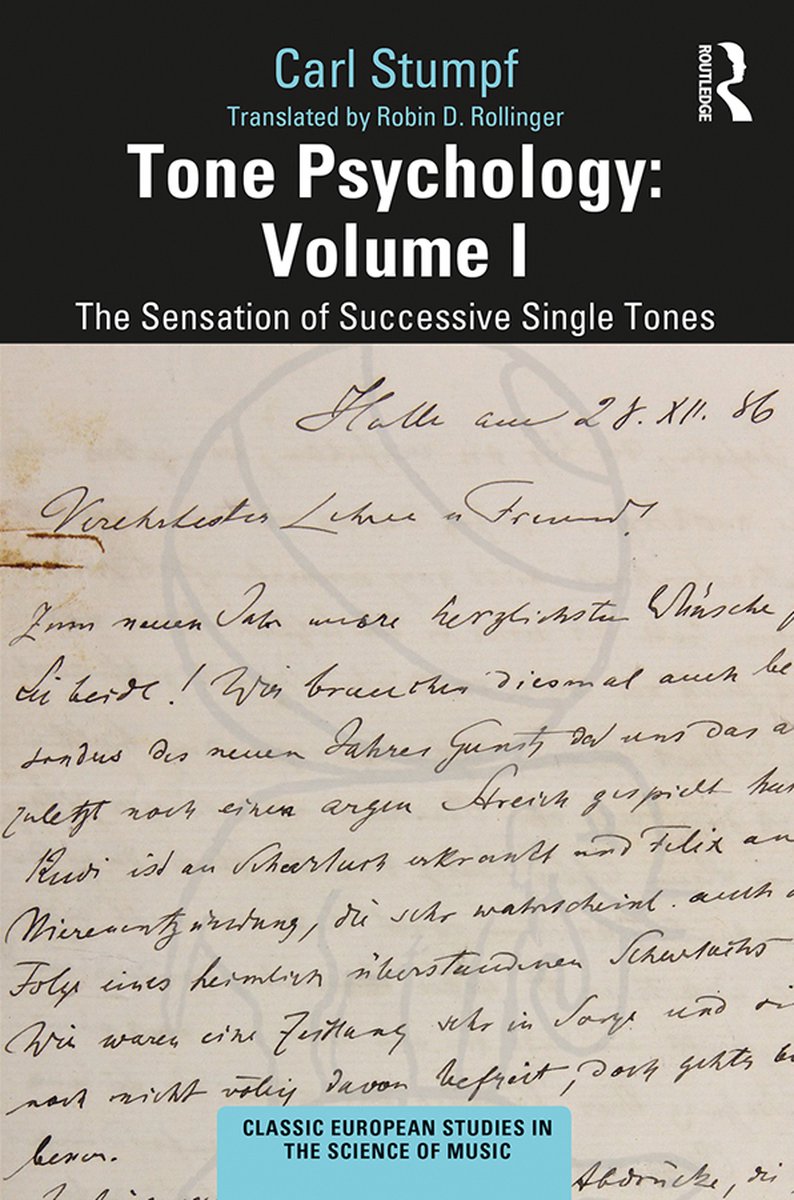 Carl Stumpf
ROUTLEDGE
Translated by Robin D. Rollinger
Tone Psychology:
Volume I
The Sensation of Successive Single Tones
Halle am 28. XII. 86
Verehrtester Lehrer u Freund!
Zum neuen Jahr unsre herzlichsten Wünsche f
Sie beide! Wir brauchen diesmal auch be
sonders des neuen Jahres Gunst, da uns das a
zuletzt noch einen argen Streich gespielt hat
Rudi ist an Scharlach erkrankt und Felix an
Nierenentzündung, die sehr wahrscheinl. auch
Folge eines heimlich überstandenen Scharlachs
Wir waren eine Zeitlang sehr in Sorge und
noch nicht völlig davon befreit, doch gehts
besser.
CLASSIC EUROPEAN STUDIES IN
THE SCIENCE OF MUSIC
Abdrücke, die